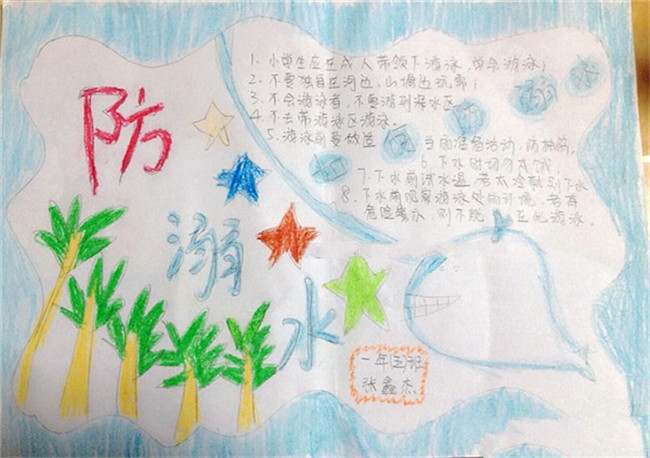 防
溺
水
1. 小学生应在成人带领下游泳,学会游泳;
2. 不要独自在河边、山塘边玩耍;
3. 不会游泳者,不要游到深水区
4. 不去带游泳区游泳。
5. 游泳前要做适当的准备活动,防抽筋。
6. 下水时切勿太饿
7. 下水前试水温,若太冷就别下水
8. 下水前观察游泳处的环境,若有
危险警示,则不能在此游泳。
溺水
一年四班
张鑫杰